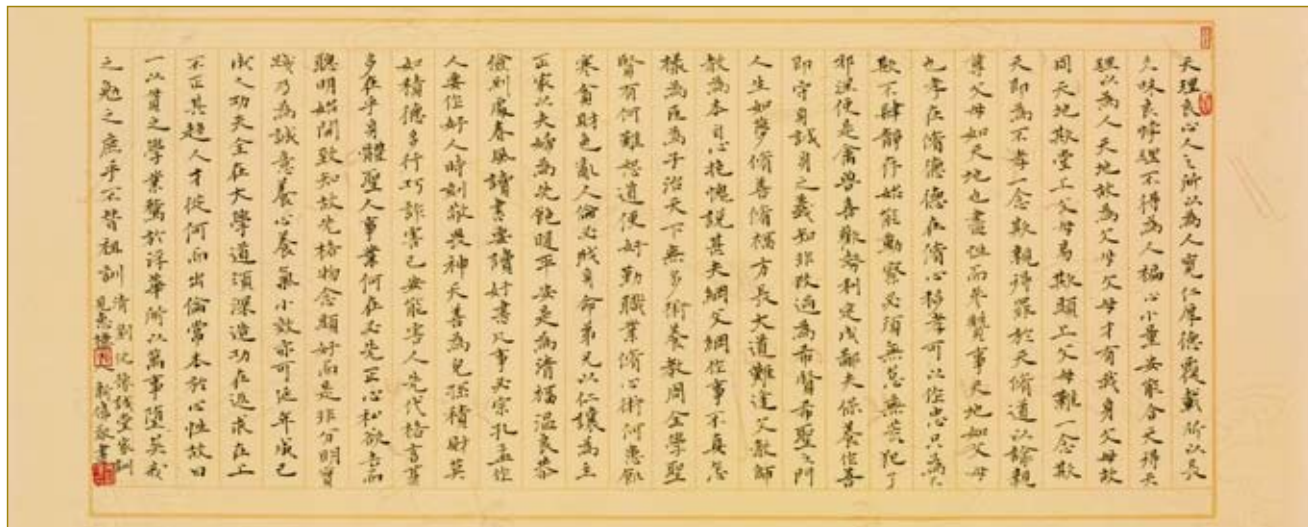 天理良心人之所以為人寬仁厚德覆載所以長
久昧良悖理不得為人褊心小量安能合天得天
理以為人天地故為父母父母才有我身父母故
同天地欺堂上父母易欺頭上父母難一念欺
天即為不孝一念欺親得罪於天脩道以諭親
尊父母如天地也盡性而參贊事天地如父母
也孝在脩德德在脩心移孝可以作忠只為不
欺不肆靜存始能動察必須無怠無荒犯了
邪淫便是禽獸喜歡勢利定成鄙夫保養作善
即守身誠身之義知非改過為希賢希聖之門
人生如夢脩善脩福方長大道難逢父教師
教為本自心抱愧說甚夫綱父綱作事不真怎
樣為臣為子治天下無多術養教周全學聖
賢有何難恕道便好勤職業脩心術何患飢
寒貪財色亂人倫必戕身命弟兄以仁讓為主
正家以夫婦為先飽暖平安是為清福溫良恭
儉到處春風讀書要讀好書凡事必宗孔孟作
人要作好人時刻敬畏神天善為兒孫積財莫
如積德多行巧詐害己安能害人先代格言雖
多在乎身體聖人事業何在必先正心私欲去而
聰明始開致知故先格物念頭好而是非分明實
踐乃為誠意養心養氣小效亦可延年成己
成人功夫全在大學道須深造功在返求在上
不正其趨人才從何而出倫常本於心性故曰
一以貫之學業騖於浮華所以萬事墮矣我
之勉之庶乎不背祖訓
清劉沅豫誠堂家訓